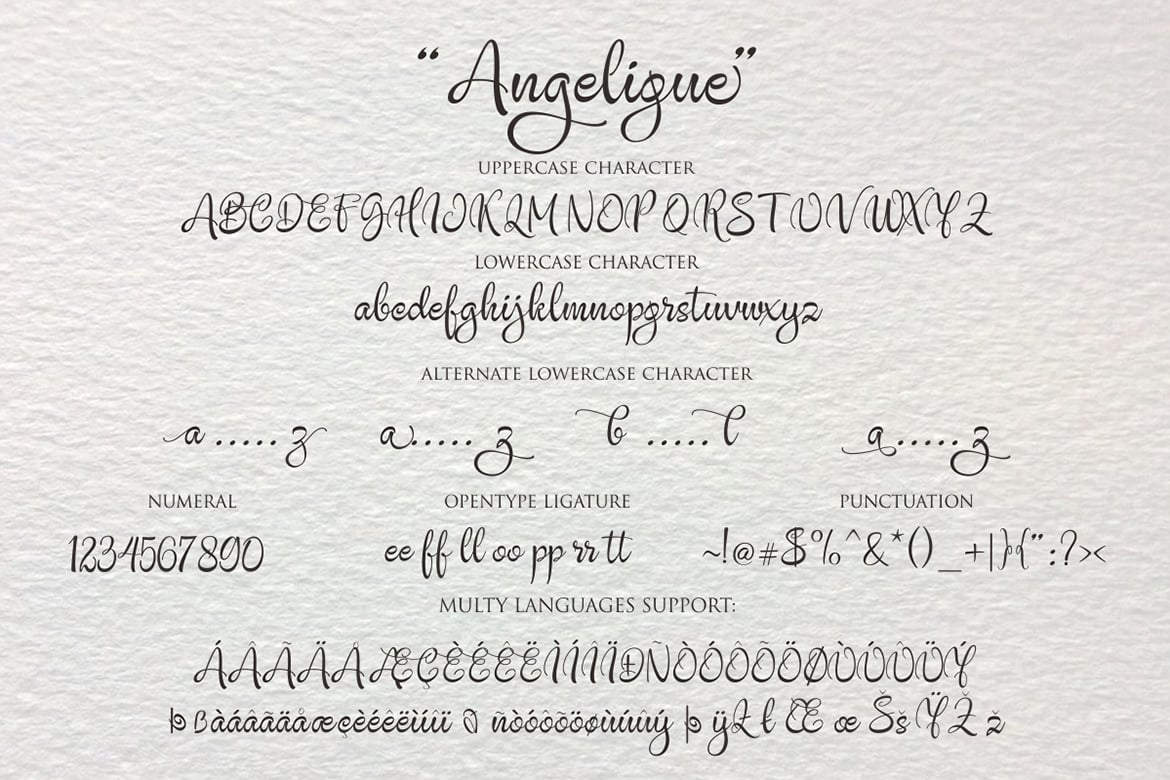 “Angelique”
UPPERCASE CHARACTER
ABCDEFGHIJKLMNOPQRSTUVWXYZ
LOWERCASE CHARACTER
abcdefghijklmnopqrstuvwxyz
ALTERNATE LOWERCASE CHARACTER
a.....z a.....z b.....l a.....z
NUMERAL OPENTYPE LIGATURE PUNCTUATION
1234567890 ee ff ll oo pp rr tt ~!@#$%^&*()_+|}{”:?><
MULTY LANGUAGES SUPPORT:
ÁÂÃÄÅÆÇÈÉÊËÌÍÎÏÐÑÒÓÔÕÖØÙÚÛÜÝ